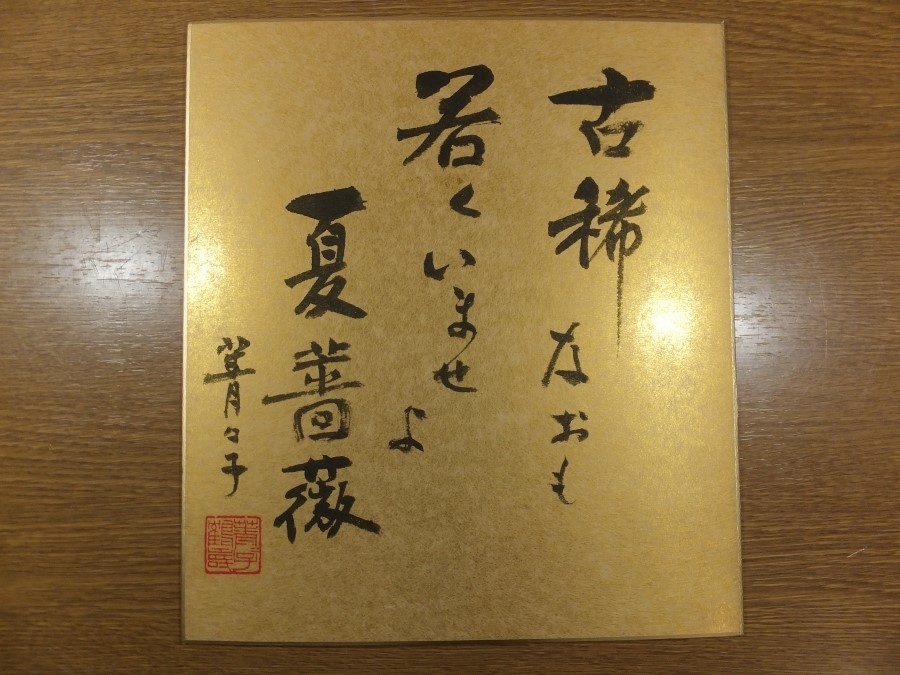 古稀なおも
若くいませよ
夏薔薇
菁々子